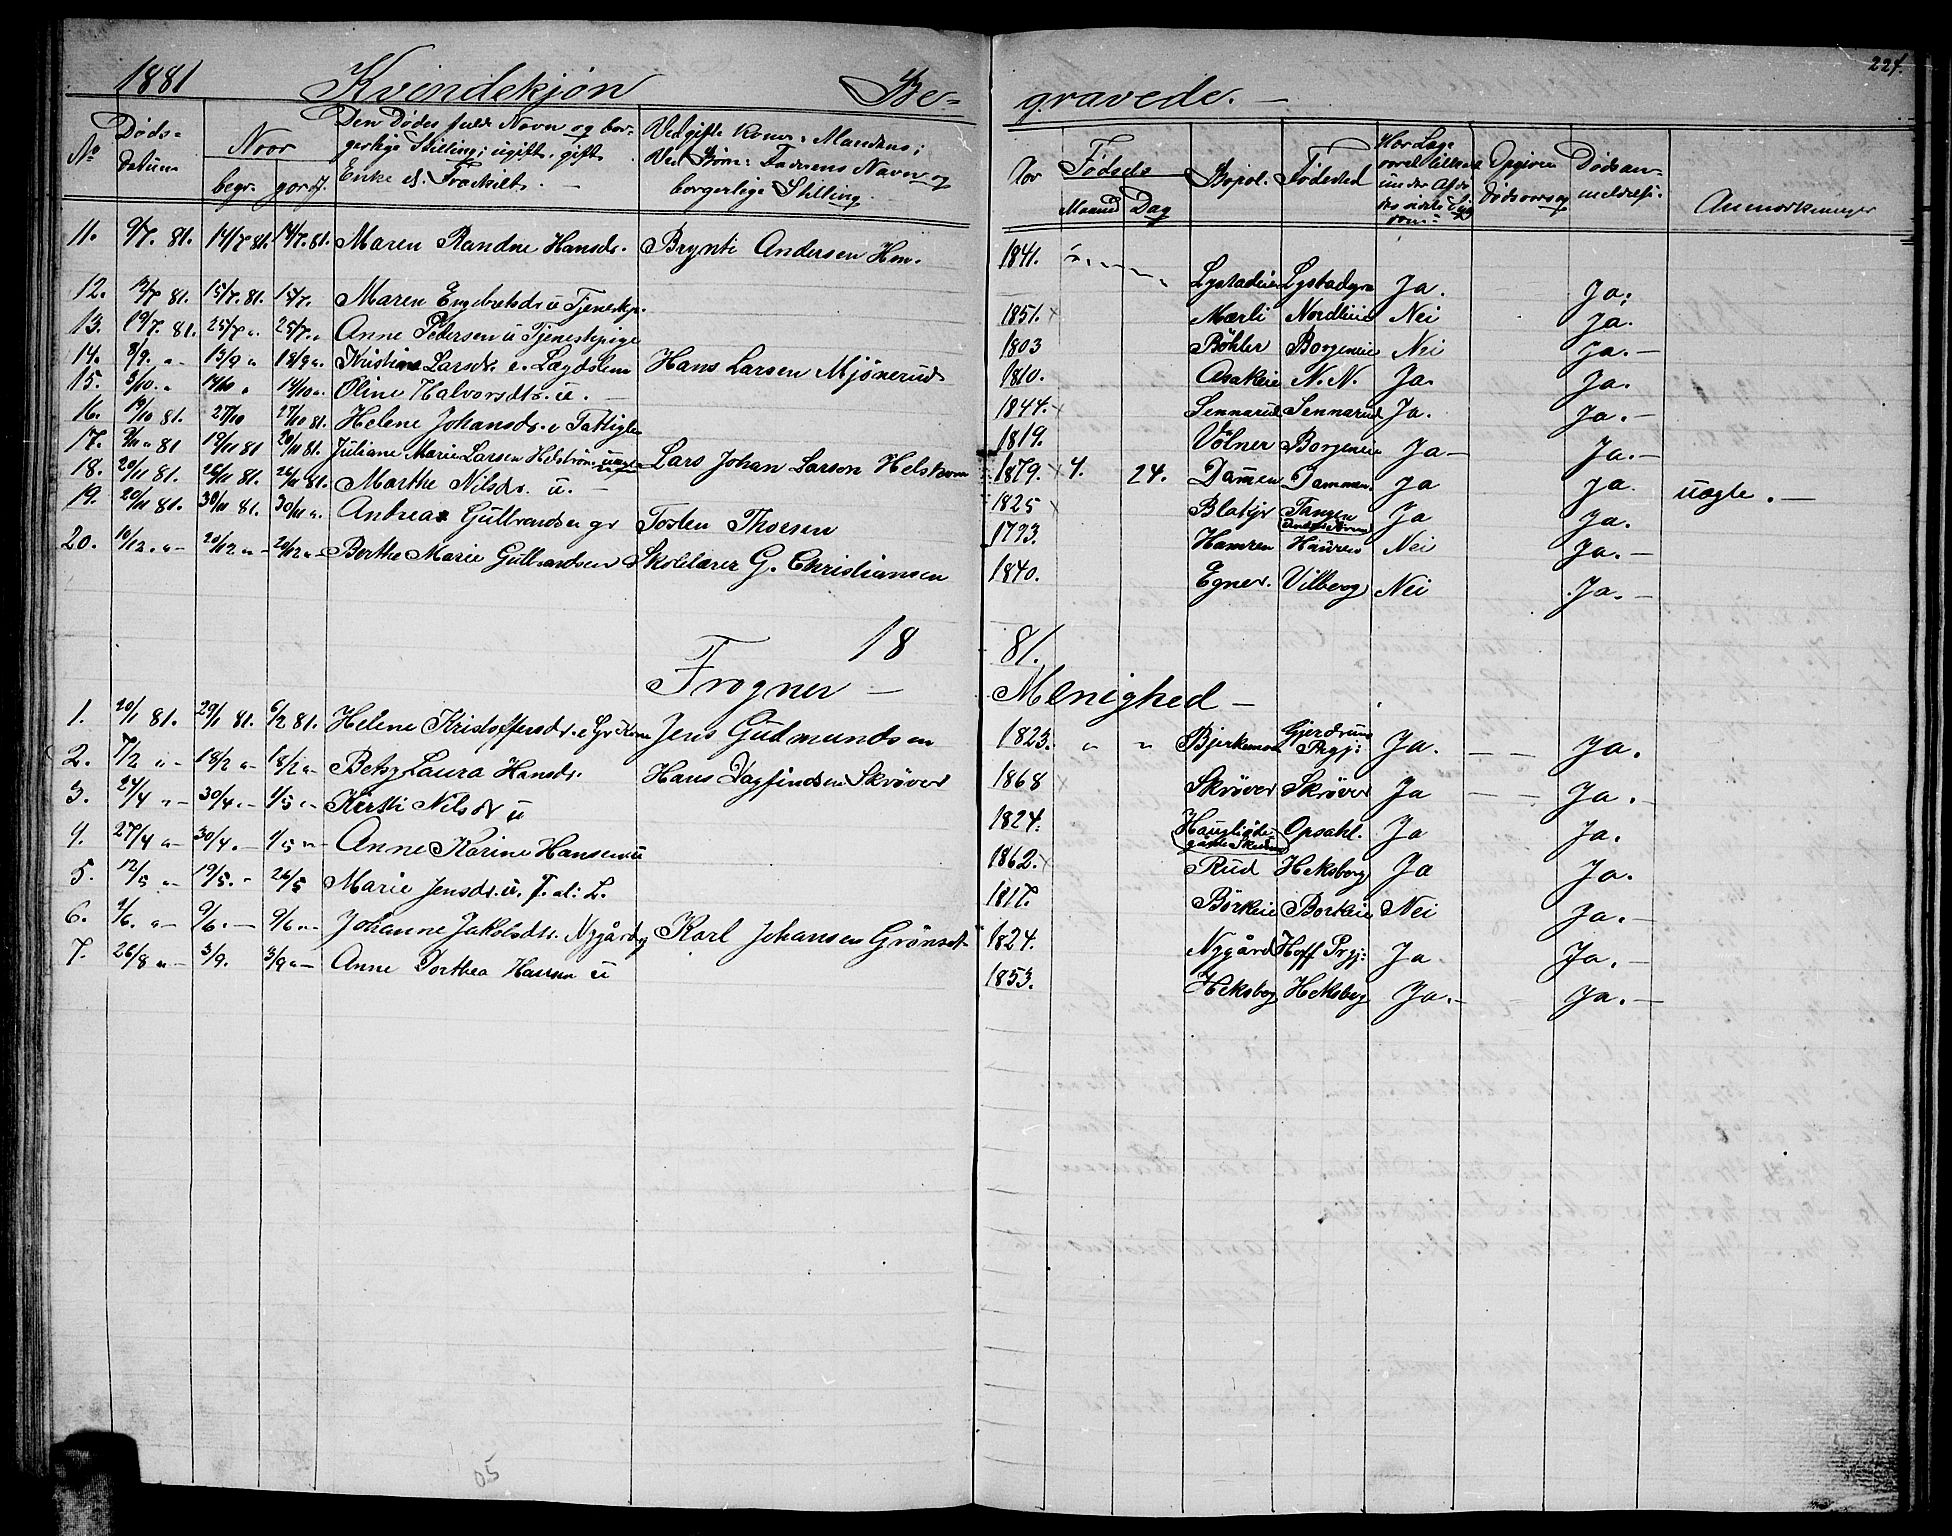 224.
1881 Kvindekjøn Be- gravede. —
No Døds- datum Naar begr. gordf. Den Dødes fulde Navn og bor- gerlige Stilling; ugift, gift Enke el. Fraskilt. — Ved gifte Koner: Mandens; Ved Børn: Faderens Navn og borgerlige Stilling. Aar Fødsels Maaned Dag Bopæl. Fødested Opgiven Dødsaarsag Dødsan- meldelse. Anmærkninger
11. 9/7. 81. 14/7 81. 14/7. 81. Maren Randne Hansdr. Brynti Andersen Hm. 1841. Lystadeie Lystadeyra Ja. Ja.
12. 12/7 81. 15/7. 81. 15/7. Maren Engebretsdr u Tjenestp. 1851. x Mærli Nordlieie Nei Ja.
13. 19/7. 81. 25/7 „ 25/7. „ Anne Pedersen u Tjenestepige 1803 Bøhler Borgeneie Nei Ja. —
14. 8/9. „ - 13/9 „ 18/9 „. Kristine Larsdr. e. Lægdslem Hans Larsen Mjønerud 1810. Asakeie N. N. Ja. Ja.
15. 3/10. „ 14/10 „ 14/10 „. Oline Halvorsdtr. u. — 1844. x Sennerud Sennerud Ja. Ja. —
16. 19/10 81. 27/10 27/10 81. Helene Johansdr. u Fattiglem 1819. Vølner Borgeneie Ja — Ja. —
17. 9/11 „ 81 19/11 81 20/11 81. Juliane Marie Larsen Helstrøm uægte Lars Johan Larsen Helstrøm 1879. x 4. 24. Dammen Dammen. Ja Ja. uægte. —
18. 20/11 81. 26/11 81. 26/11 81. Marthe Nilsdr. u. — 1825 x Blakjer Tangen Ja Ja.
19. 20/11 81. 30/11 81. 30/11 „. Andrea Gulbrandsen gr Tosten Thoesen 1793. Hamren Nei Ja. —
20. 10/12. „ - 20/12 „ - 20/12 „ - Berthe Marie Gulbrandsen Skolelærer G. Christiansen 1840. Egner. Vilberg Nei Ja. —
18 81.
Frogner — Menighed —
1. 20/1 81. 29/1 81. 6/2 81. Helene Kristoffersdr. e Gr.Kone Jens Gudmundsen 1823. „ „ Bjerkemoe Gjerdrum Prgj: Ja. — — Ja.
2. 7/2 „ - 18/2 „ - 18/2 „ - Betzy Laura Hansdr. Hans Dagfindsen Skrøver 1868 x Skrøver Skrøver Ja — — Ja. —
3. 24/4 „ - 30/4. „ - 1/5 „ - Kersti Nilsdr u 1824. Opsahl. Ja Ja.
4. 27/4 „ - 30/4. - 1/5 „ - Anne Karine Hansen u 1862. x Rud Heksberg Ja Ja.
5. 12/5 „ - 19/5. - 26/5 Marie Jensdr. u. F. al: L. 1817. Børkeie Borkeie Nei Ja. —
6. 1/6. „ - 9/6. — 9/6 „ - Johanne Jakobsdtr. Nygård Karl Johansen Grønset 1824. Nygård Hoff Prgj: Ja. Ja. —
7. 26/8 „ - 3/9. 3/9 „ - Anne Dorthea Hansen u 1853. Heksberg Heksberg Ja. — Ja. —
05